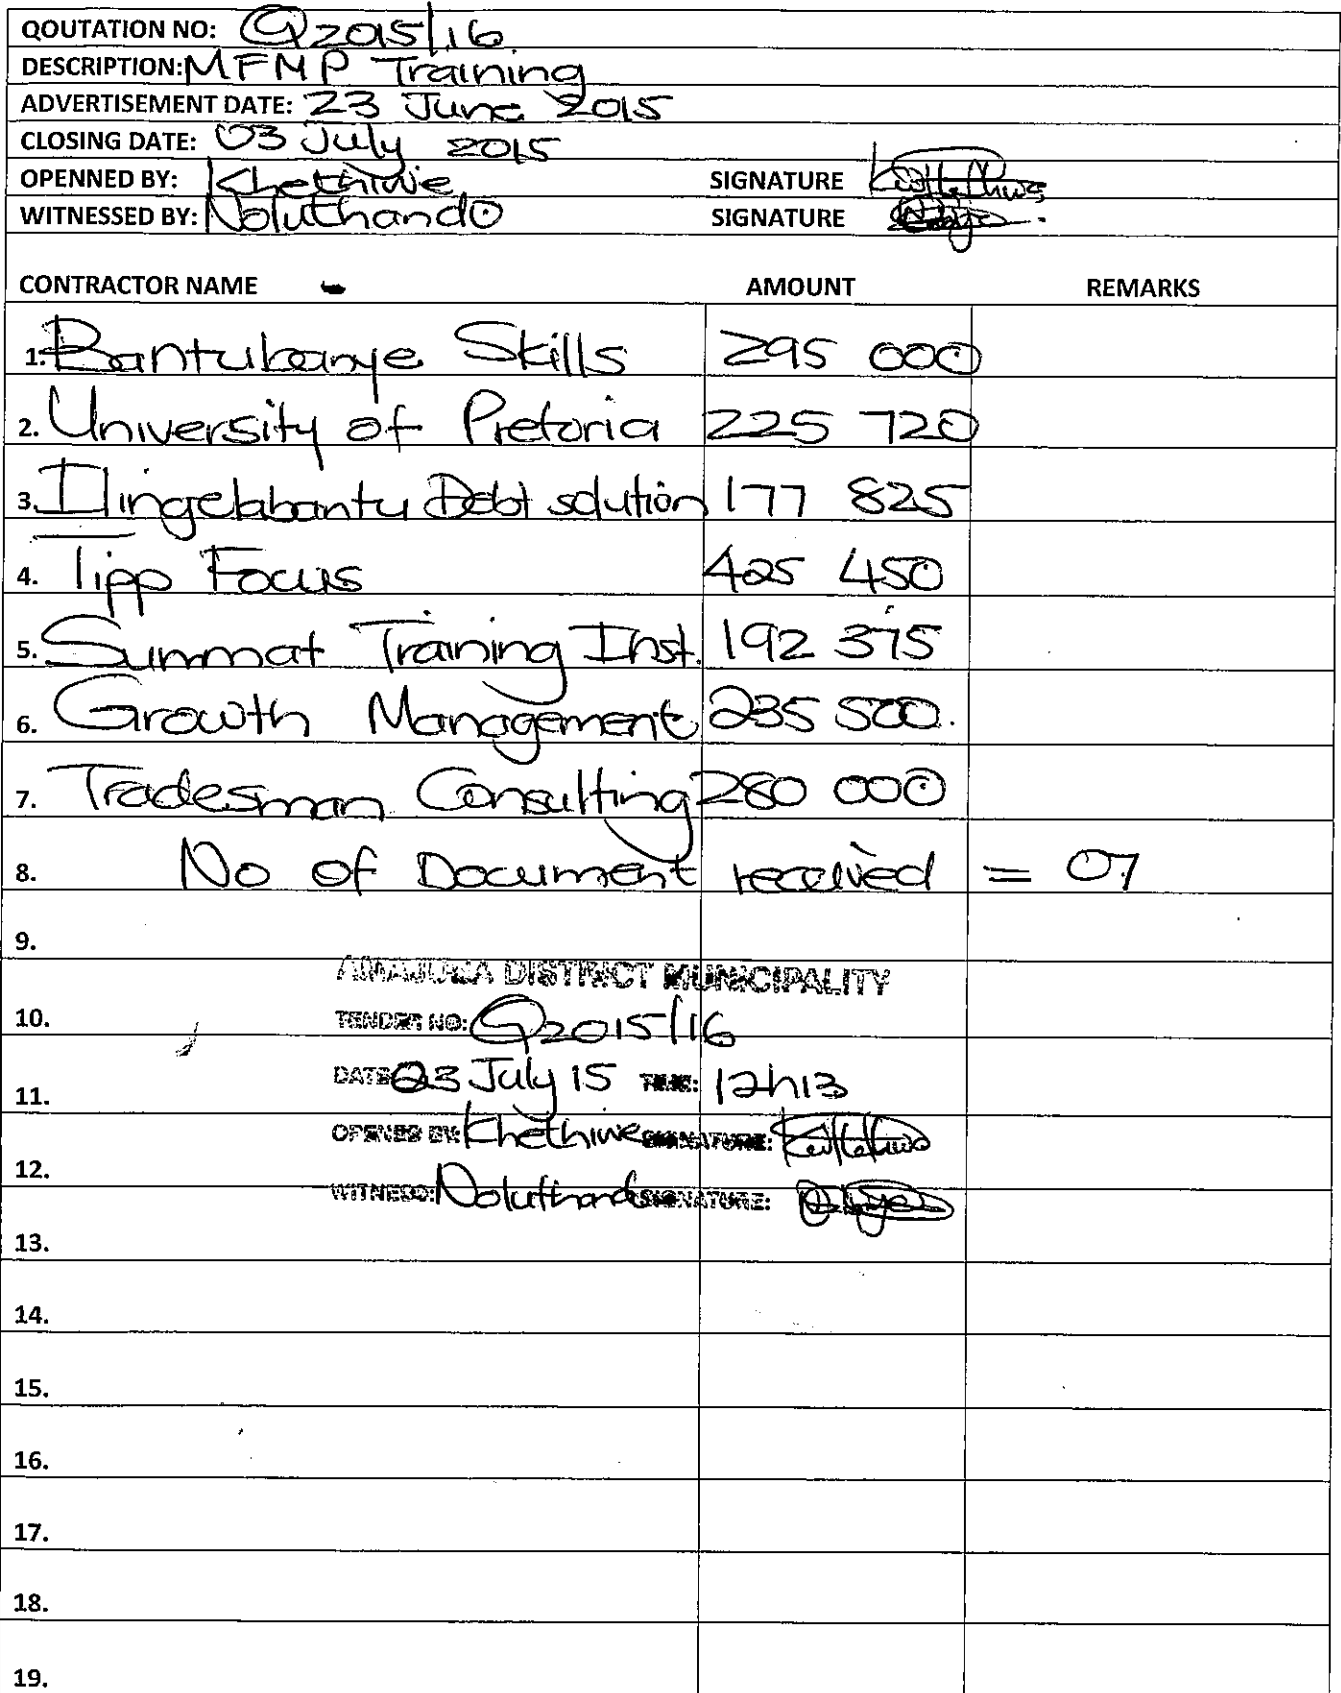 QOUTATION NO: Q2015/16
DESCRIPTION: MFMP Training
ADVERTISEMENT DATE: 23 June 2015
CLOSING DATE: 03 July 2015
OPENNED BY: Khethiwe SIGNATURE
WITNESSED BY: Noluthando SIGNATURE
CONTRACTOR NAME AMOUNT REMARKS
1. Bantubanye Skills 295 000
2. University of Pretoria 225 720
3. Ilingelabantu Debt solution 177 825
4. Tipp Focus 425 450
5. Summat Training Inst. 192 375
6. Growth Management 235 500.
7. Tradesman Consulting 280 000
8. No of Document received = 07
9.
AMAJUBA DISTRICT MUNICIPALITY
10. TENDER NO: Q2015/16
DATE 03 July 15 TIME: 12h13
11.
OPENED BY: Khethiwe SIGNATURE:
12.
WITNESS: Noluthando SIGNATURE:
13.
14.
15.
16.
17.
18.
19.